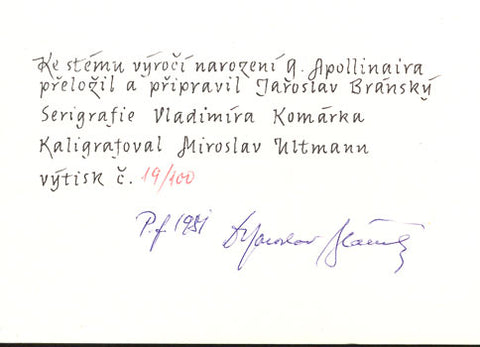 Ke stému výročí narození G. Apollinaira
přeložil a připravil Jařoslav Bránský
Serigrafie Vladimíra Komárka
Kaligrafoval Miroslav Ultmann
výtisk č. 19/100
P.f 1981
Jaroslav